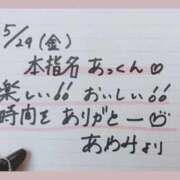 5/29(金)
本指名 あっくん♡
楽しい!! おいしい!!
時間を ありがとー♡
あゆみより